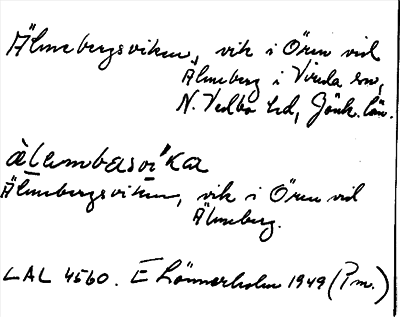 Älmebergsviken, vik i Ören vid
Älmeberg i Vireda sn,
N. Vedbo hd, Jönk. län.
àlembasvi"ka
Älmebergsviken, vik i Ören vid
Älmeberg.
LAL 4560. E Lönnerholm 1949 (Pm.)